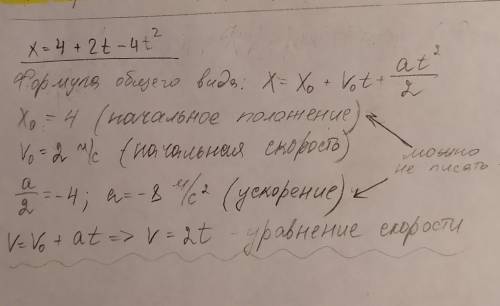 x = 4 + 2t - 4t²
Формула общего вида: x = x₀ + v₀t + at²/2
x₀ = 4 (начальное положение)
v₀ = 2 м/с (начальная скорость)
можно
не писать
a/2 = -4; a = -8 м/с² (ускорение)
v = v₀ + at => v = 2t - уравнение скорости